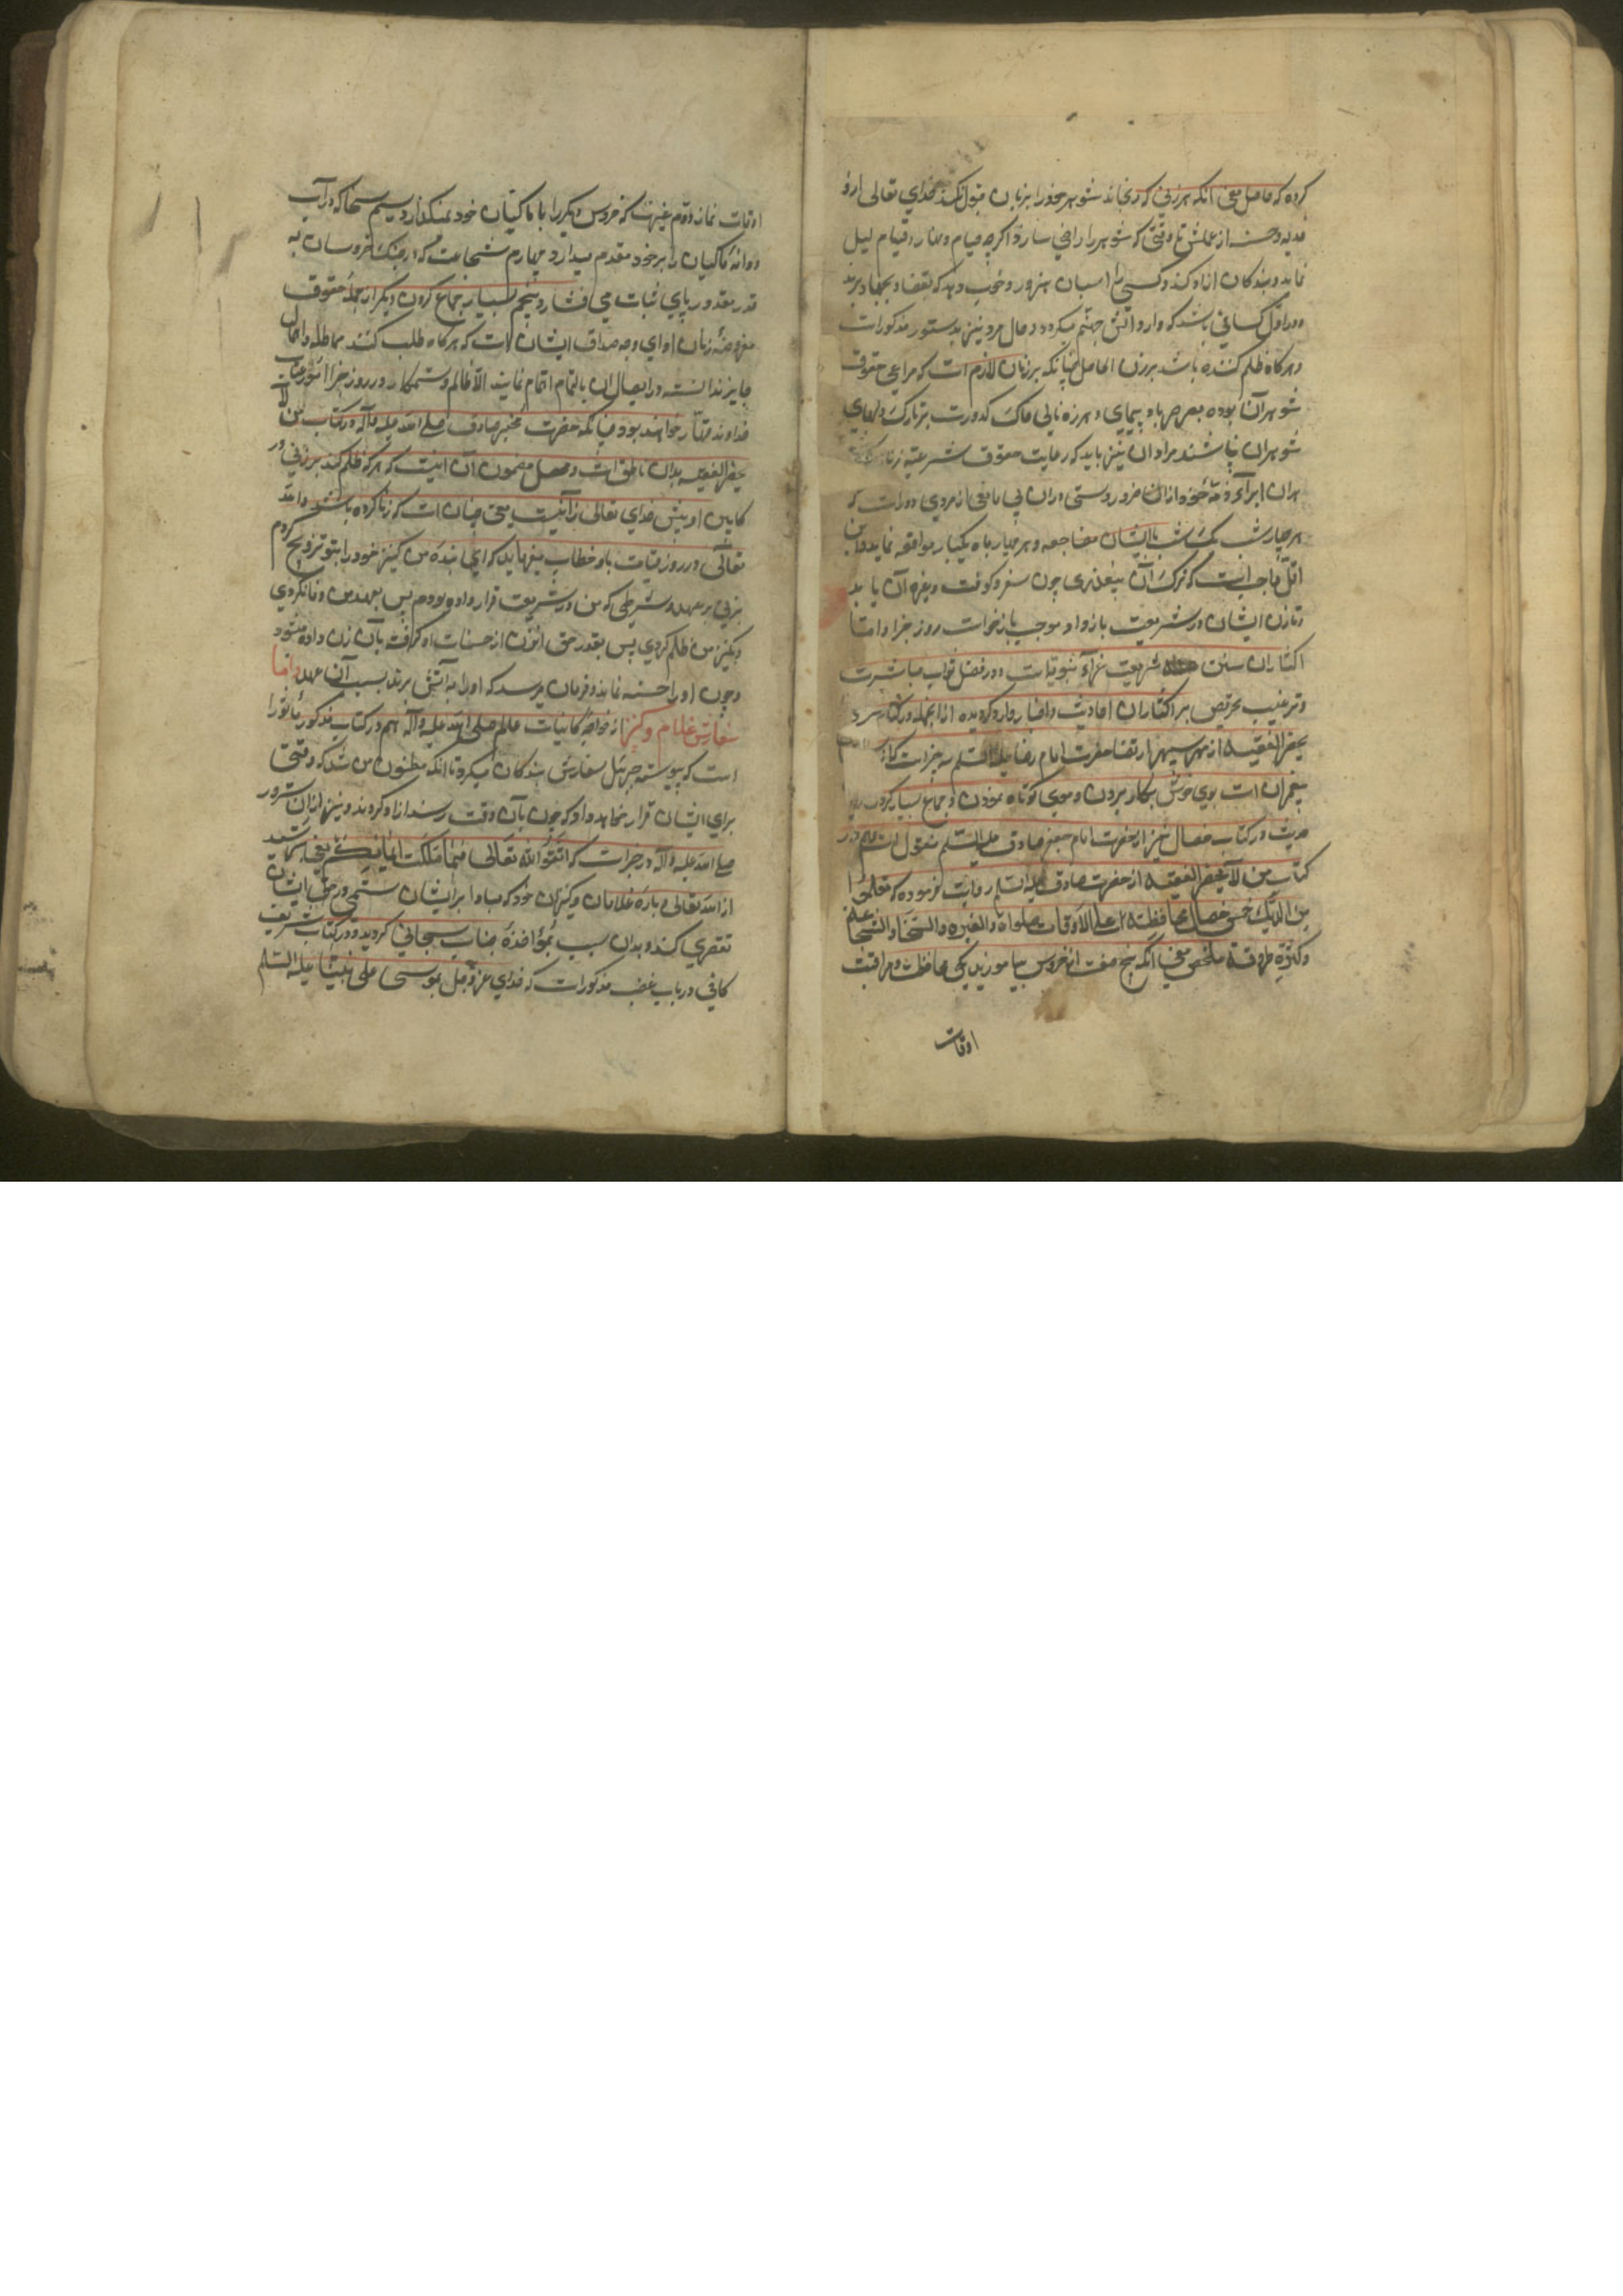 کرده که حاصل معنی آنکه هر زنی که برنجاند شوهر خود را بزبان قبول نکند خدای تعالی ازو
فدیه و حسنه از عملش تا وقتی که شوهر را راضی سازد اگرچه صیام و نهار و قیام لیل
نماید و بندگان آزاد کند و کسی را اسبان هزور و خوب دهد که بقضا و بجهاد برند
و در اول کسانی باشد که وارد آتش جهنم میگردد و حال مرد نیز بدستور مذکور است
و هرگاه ظلم کننده باشد بر زن الحاصل چنانکه بر زنان لازم است که مراعی حقوق
شوهر آنها بوده بصرصر باد پیمای و هرزه نالی خاک کدورت بر تارک دلهای
شوهران نپاشند مردان نیز باید که رعایت حقوق شرعیه زنان
بران ابرآء ذمه خود از آنها ضرور و سستی دران بی مانعی از مردی دور است که
هر چهار شب یک شب با ایشان مضاجعه و هر چهار ماه یکبار مواقعه نماید و این
اقل واجبست که ترک آن بیعذری چون سفر و کوفت و غیره آن باید
و تا زن ایشان در شریعت بازوا و موجب بازخواست روز جزا و اما
اکثاران سنن شریعت غرّآء نبویه است و در فضل ثواب مباشرت
و ترغیب و تحریص بر اکثاران احادیث و اخبار وارد گردیده از انجمله در کتاب من
یحضر الفقیه از مهر سپهر ارتضا حضرت امام رضا علیه السلم سه چیز است که از
پیغمبران است بوی خوش بکار بردن و موی کوتاه نمودن و جماع بسیار کردن
حدیث در کتاب خصال نیز از حضرت امام جعفر صادق علیه السلم منقول است و هم در
کتاب من لا یحضر الفقیه از حضرت صادق علیه السلم روایت فرموده که تعلموا
من الدیک خمس خصال محافظته علی الاوقات صلوات و الغیره و السخا و الشجاعه
و کثره طروقه ملخص معنی آنکه پنج صفت از خروس بیاموزید یکی محافظت و مراقبت
اوقات
اوقات نماز دوم غیرت که خروس دیگر را با ماکیان خود نمیگذارد سیم سخا که در آب
و دانه ماکیان را بر خود مقدم میدارد چهارم شجاعت که در جنگ خروسان به
قدر مقدور پای ثبات می فشارد و پنجم بسیار جماع کردن و دیگر از جمله حقوق
مفروضه زنان ادای وجه صداق ایشان است که هرگاه طلب کنند مماطله و اهمال
جایز ندانسته در ایصال ان بالتمام اهتمام نمایند الا ظالم و ستمکار و در روز جزا مورد عتاب
خداوند قهار خواهند بود چنانکه حضرت مخبر صادق صلی الله علیه و آله در کتاب من لا
یحضر الفقیه بدان ناطق است و محصل مضمون آن اینست که هر که ظلم کند بر زنی در
کابین او پیش خدای تعالی زانیست یعنی چنان است که زنا کرده باشد و الله
تعالی در روز قیامت باو خطاب میفرماید که ای بنده من کنیز خود را بتو تزویج کردم
بر عهد و شرطی که من در شریعت قرار داده بودم پس بعهد من وفا نکردی
و بکنیز من ظلم کردی پس بقدر حق آنزن از حسنات او گرفته بآن زن داده میشود
و چون او را حسنه نماند فرمان میرسد که او را به آتش برند بسبب آن عهد و اما
سفارش غلام و کنیز از خواجه کاینات علیه صلی الله علیه و آله هم در کتاب مذکور مأثورا
است که پیوسته جبرئیل سفارش بندگان میکرد تا آنکه مظنون من شد که وقتی
برای ایشان قرار خواهد داد که چون بآن وقت رسند آزاد گردند و نیز از آن سرور
صلی الله علیه و آله در خبر است که اتقوا الله تعالی فیما ملکت ایمانکم یعنی بترسید
از الله تعالی در باره غلامان و کنیزان خود که مبادا بر ایشان ستمی و در حق ایشان
تقصیری کنند و بدان سبب بمؤاخذه جناب سبحانی گردید و در کتاب شریف
کافی در باب غضب مذکور است که خدای عز و جل بموسی علی نبینا علیه السلم